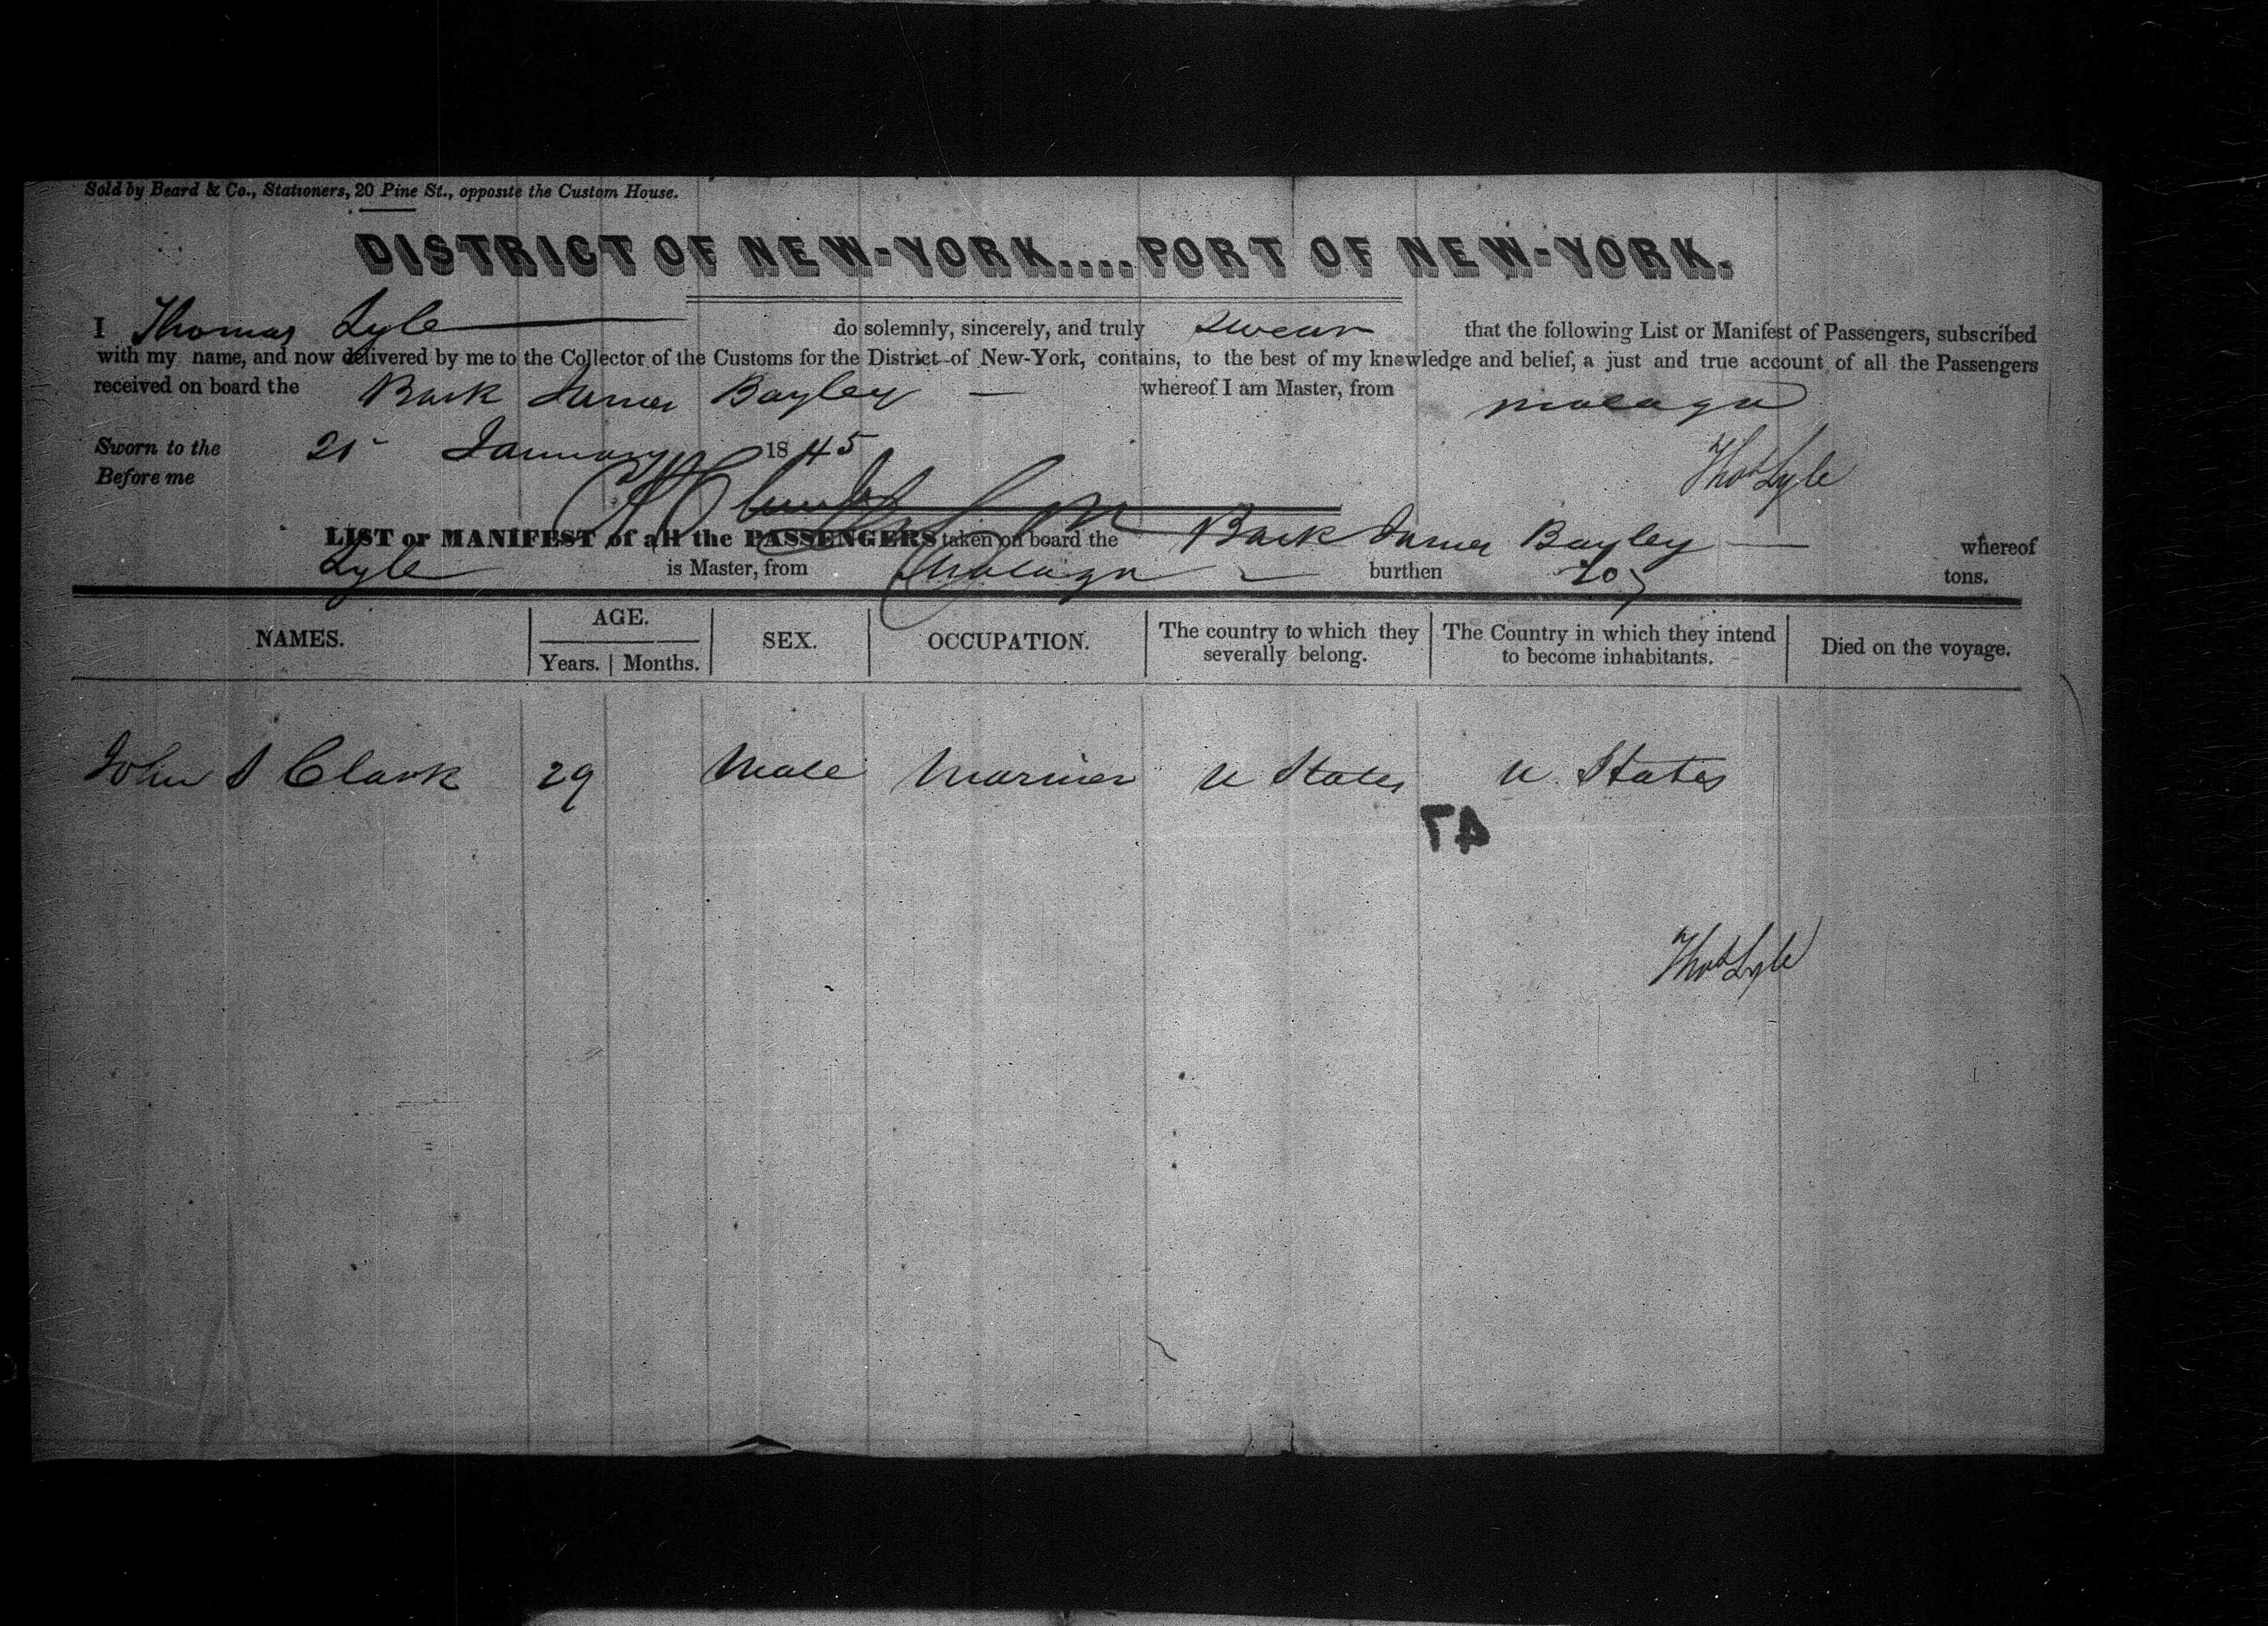 Sold by Beard & Co., Stationers, 20 Pine St., opposite the Custom House.
DISTRICT OF NEW-YORK....PORT OF NEW-YORK.
I Thomas Lyle do solemnly, sincerely, and truly swear that the following List or Manifest of Passengers, subscribed
with my name, and now delivered by me to the Collector of the Customs for the District of New-York, contains, to the best of my knowledge and belief, a just and true account of all the Passengers
received on board the Bark James Bayley — whereof I am Master, from malaga
Sworn to the 21 January 1845
Thos Lyle
Before me
LIST or MANIFEST of all the PASSENGERS taken on board the Bark James Bayley — whereof
Lyle is Master, from Malaga — burthen 207 tons.
NAMES. AGE. SEX. OCCUPATION. The country to which they severally belong. The Country in which they intend to become inhabitants. Died on the voyage.
Years. Months.
John S Clark 29 Male Mariner U States U States
47
Thos Lyle